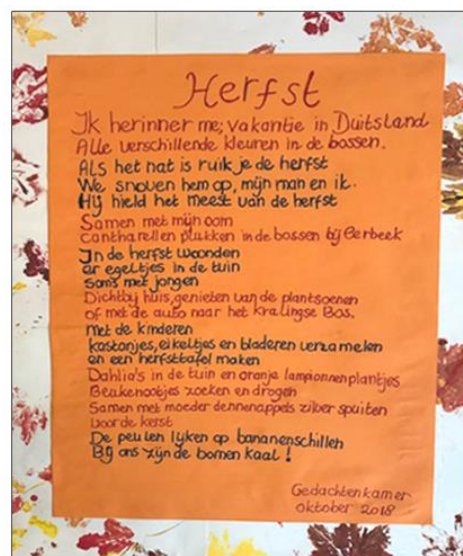 Herfst
Ik herinner me; vakantie in Duitsland
Alle verschillende kleuren in de bossen.
Als het nat is ruik je de herfst
We snoven hem op, mijn man en ik.
Hij hield het meest van de herfst
Samen met mijn oom
cantharellen plukken in de bossen bij Oerbeek
In de herfst woonden
er egeltjes in de tuin
soms met jongen
Dichtbij huis, genieten van de plantsoenen
of met de auto naar het Kralingse Bos.
Met de kinderen
kastanjes, eikeltjes en bladeren verzamelen
en een herfsttafel maken
Dahlia's in de tuin en oranje lampionnenplantjes
Beukenootjes zoeken en drogen
Samen met moeder dennenappels zilver spuiten
voor de kerst
De peulen lijken op bananenschillen
Bij ons zijn de bomen kaal!
Gedachtenkamer
oktober 2018